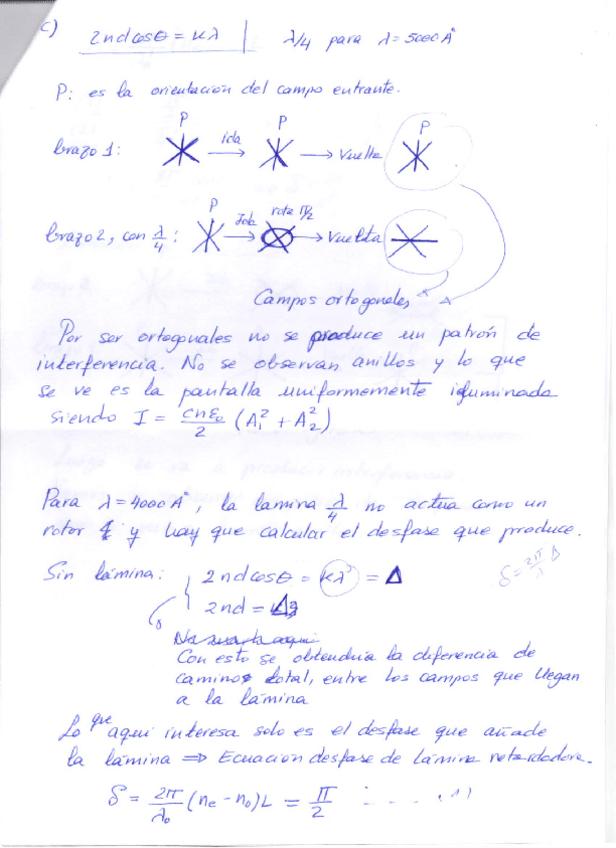 c) 2ndcosθ = kλ | λ/4 para λ = 5000 A°
P: es la orientación del campo entrante.
P P P
brazo 1: ida → → Vuelta
P rota π/2
brazo 2, con λ/4 : Ida → → Vuelta
Campos ortogonales
Por ser ortogonales no se produce un patrón de
interferencia. No se observan anillos y lo que
se ve es la pantalla uniformemente iluminada
siendo I = cnε₀/2 (A₁² + A₂²)
Para λ = 4000 A°, la lamina λ/4 no actua como un
rotor y hay que calcular el desfase que produce.
Sin lámina: 2ndcosθ = kλ = Δ δ = 2π/λ Δ
2nd = Δ
Con esto se obtendria la diferencia de
caminos total, entre los campos que llegan
a la lámina
Lo que aqui interesa solo es el desfase que añade
la lámina ⇒ Ecuacion desfase de lámina retardadora.
δ = 2π/λ₀ (nₑ - n₀)L = π/2